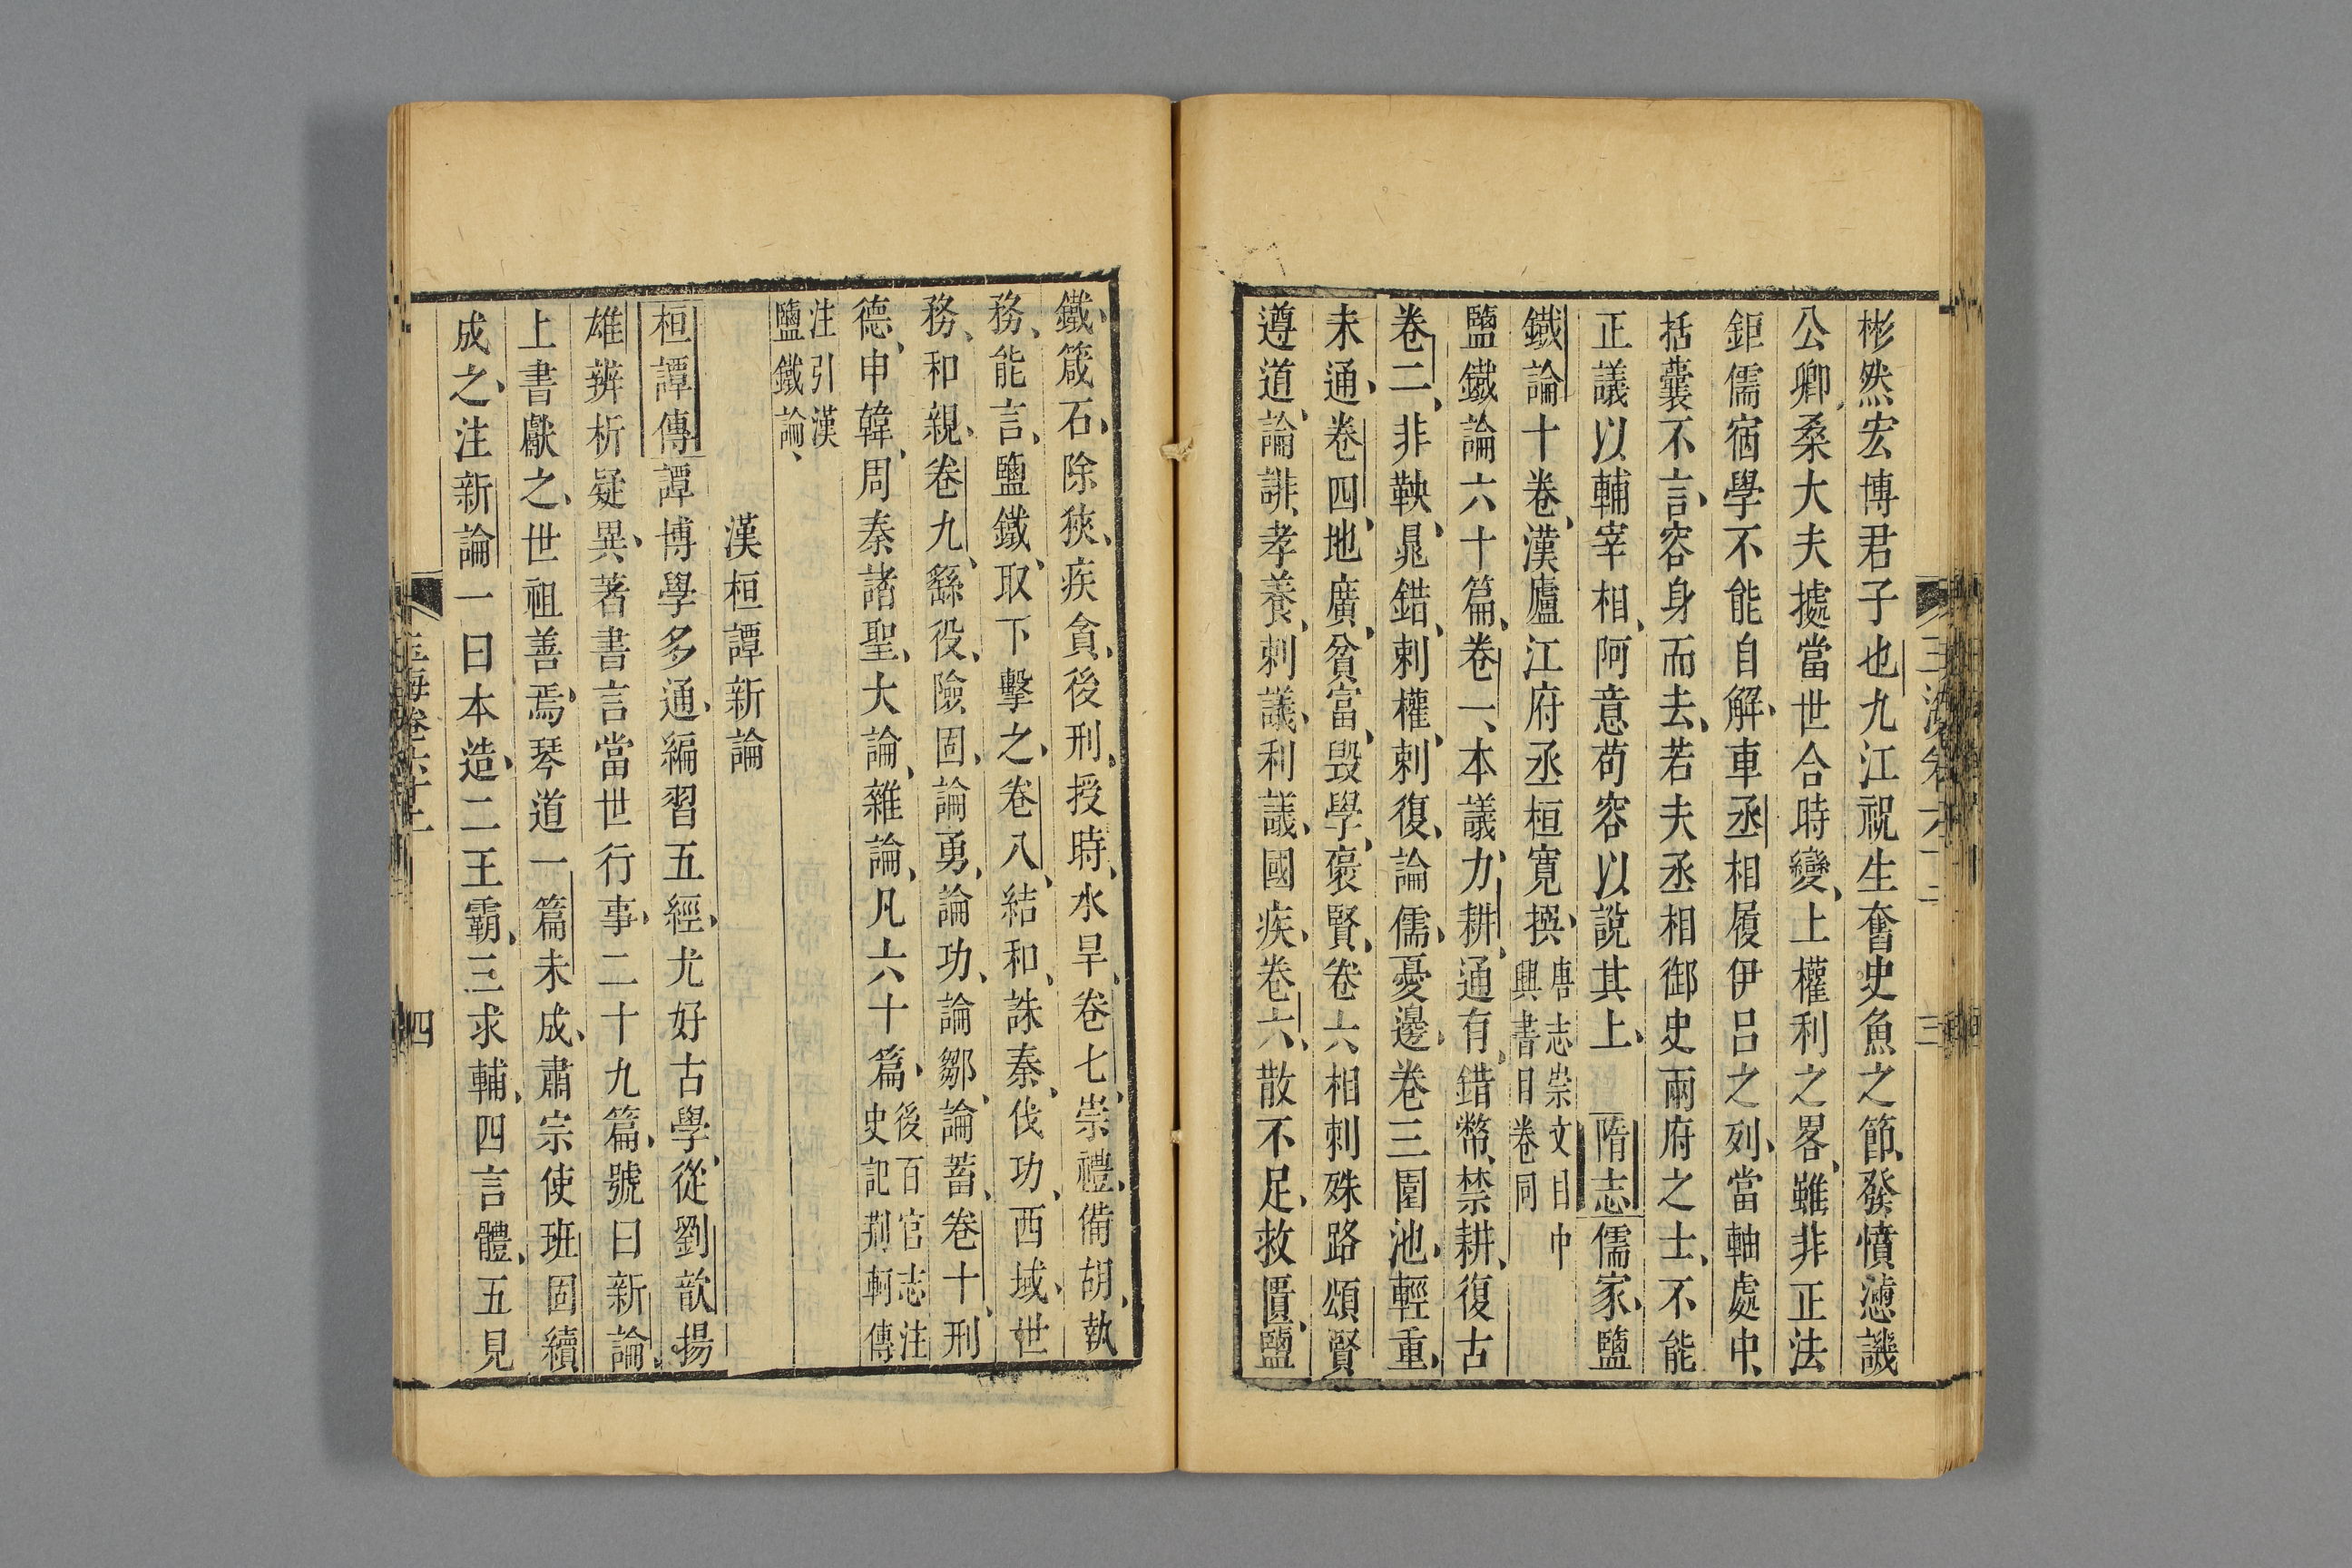 彬然宏博君子也九江祝生奮史魚之節發憤懣譏
公卿桑大夫據當世合時變上權利之畧雖非正法
鉅儒宿學不能自解車丞相履伊呂之列當軸處中
括囊不言容身而去若夫丞相御史兩府之士不能
正議以輔宰相阿意苟容以說其上 隋志儒家鹽
鐵論十卷漢廬江府丞桓寬撰唐志崇文目中興書目卷同
鹽鐵論六十篇卷一本議力耕通有錯幣禁耕復古
卷二非鞅晁錯刺權刺復論儒憂邊卷三園池輕重
未通卷四地廣貧富毀學褒賢卷六相刺殊路頌賢
遵道論誹孝養刺議利議國疾卷六散不足救匱鹽
鐵箴石除狹疾貪後刑授時水旱卷七崇禮備胡執
務能言鹽鐵取下擊之卷八結和誅秦伐功西域世
務和親卷九繇役險固論勇論功論鄒論蓄卷十刑
德申韓周秦諸聖大論雜論凡六十篇後百官志注史記荆軻傳
注引漢鹽鐵論
漢桓譚新論
桓譚傳譚博學多通編習五經尤好古學從劉歆揚
雄辨析疑異著書言當世行事二十九篇號曰新論
上書獻之世祖善焉琴道一篇未成肅宗使班固續
成之注新論一曰本造二王霸三求輔四言體五見
玉海卷六十二
四